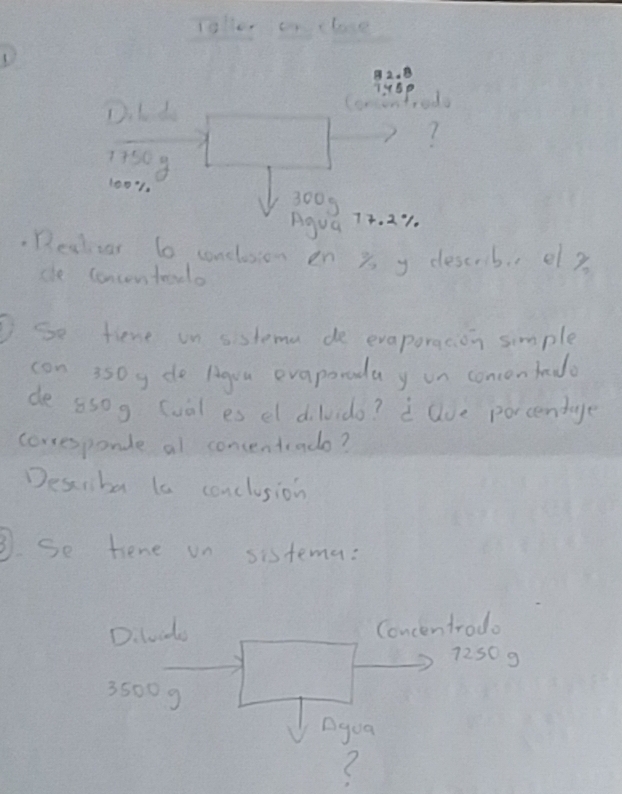 Taller en clase
1
82.8
1450
Diluido
Concentrado
?
1750 g
100%
300g
Agua 17.2%
• Realizar la conclusion en % y describir el %
de concentrado
Se tiene un sistema de evaporación simple
con 350 g de Agua evaporada y un concentrado
de 850 g Cuál es el diluido? ¿ Que porcentaje
corresponde al concentrado?
Describa la conclusión
3. Se tiene un sistema:
Diluido
Concentrado
3500 g
1250 g
Agua
?